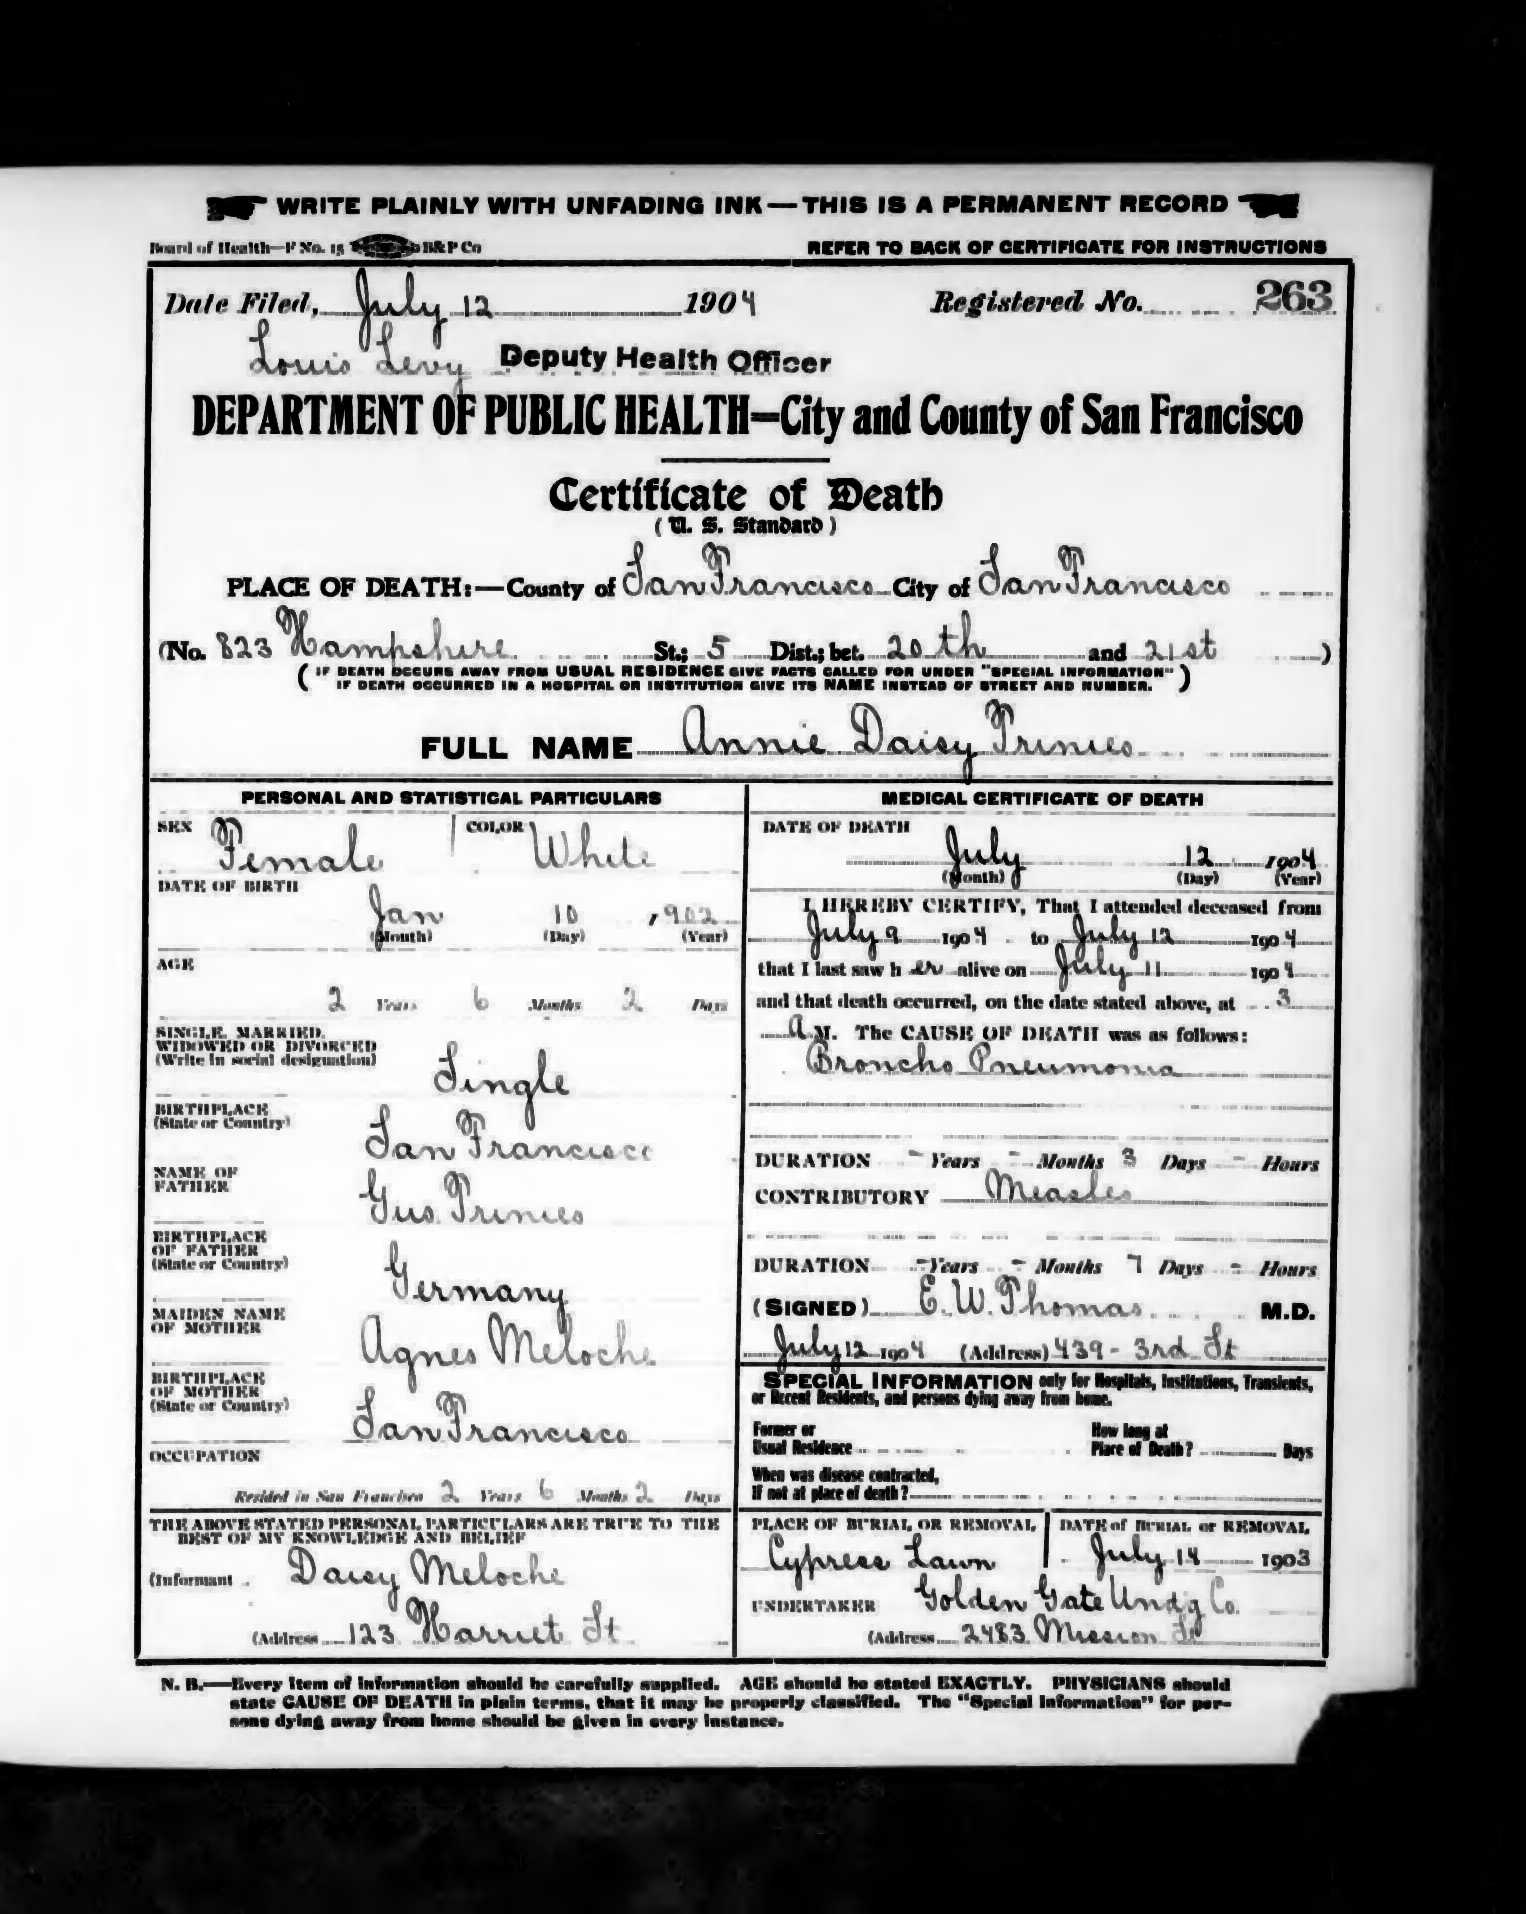 WRITE PLAINLY WITH UNFADING INK—THIS IS A PERMANENT RECORD
Board of Health—F No. 15 B&P Co REFER TO BACK OF CERTIFICATE FOR INSTRUCTIONS
Date Filed, July 12 1904 Registered No. 263
Louis Levy Deputy Health Officer
DEPARTMENT OF PUBLIC HEALTH=City and County of San Francisco
Certificate of Death
(U. S. Standard)
PLACE OF DEATH:—County of San Francisco City of San Francisco
(No. 823 Hampshire St.; 5 Dist.; bet. 20th and 21st )
(IF DEATH OCCURS AWAY FROM USUAL RESIDENCE GIVE FACTS CALLED FOR UNDER "SPECIAL INFORMATION"
IF DEATH OCCURRED IN A HOSPITAL OR INSTITUTION GIVE ITS NAME INSTEAD OF STREET AND NUMBER.)
FULL NAME Annie Daisy Prinies
PERSONAL AND STATISTICAL PARTICULARS
SEX Female COLOR White
DATE OF BIRTH
Jan 10 , 902
(Month) (Day) (Year)
AGE
2 Years 6 Months 2 Days
SINGLE, MARRIED,
WIDOWED OR DIVORCED
(Write in social designation)
Single
BIRTHPLACE
(State or Country)
San Francisco
NAME OF
FATHER
Gus Prinies
BIRTHPLACE
OF FATHER
(State or Country)
Germany
MAIDEN NAME
OF MOTHER
Agnes Meloche
BIRTHPLACE
OF MOTHER
(State or Country)
San Francisco
OCCUPATION
Resided in San Francisco 2 Years 6 Months 2 Days
THE ABOVE STATED PERSONAL PARTICULARS ARE TRUE TO THE
BEST OF MY KNOWLEDGE AND BELIEF
(Informant Daisy Meloche
(Address 123 Harriet St
MEDICAL CERTIFICATE OF DEATH
DATE OF DEATH
July 12 1904
(Month) (Day) (Year)
I HEREBY CERTIFY, That I attended deceased from
July 9 1904 to July 12 1904
that I last saw h er alive on July 11 1904
and that death occurred, on the date stated above, at 3
A M. The CAUSE OF DEATH was as follows:
Broncho Pneumonia
DURATION - Years - Months 3 Days - Hours
CONTRIBUTORY Measles
DURATION - Years - Months 7 Days - Hours
(SIGNED) E. W. Thomas M.D.
July 12 1904 (Address) 439 - 3rd St
SPECIAL INFORMATION only for Hospitals, Institutions, Transients,
or Recent Residents, and persons dying away from home.
Former or
Usual Residence
How long at
Place of Death? Days
When was disease contracted,
If not at place of death?
PLACE OF BURIAL OR REMOVAL
Cypress Lawn
DATE of BURIAL or REMOVAL
July 14 1903
UNDERTAKER Golden Gate Undg Co.
(Address 2483 Mission St
N. B.—Every item of information should be carefully supplied. AGE should be stated EXACTLY. PHYSICIANS should
state CAUSE OF DEATH in plain terms, that it may be properly classified. The "Special Information" for per-
sons dying away from home should be given in every instance.